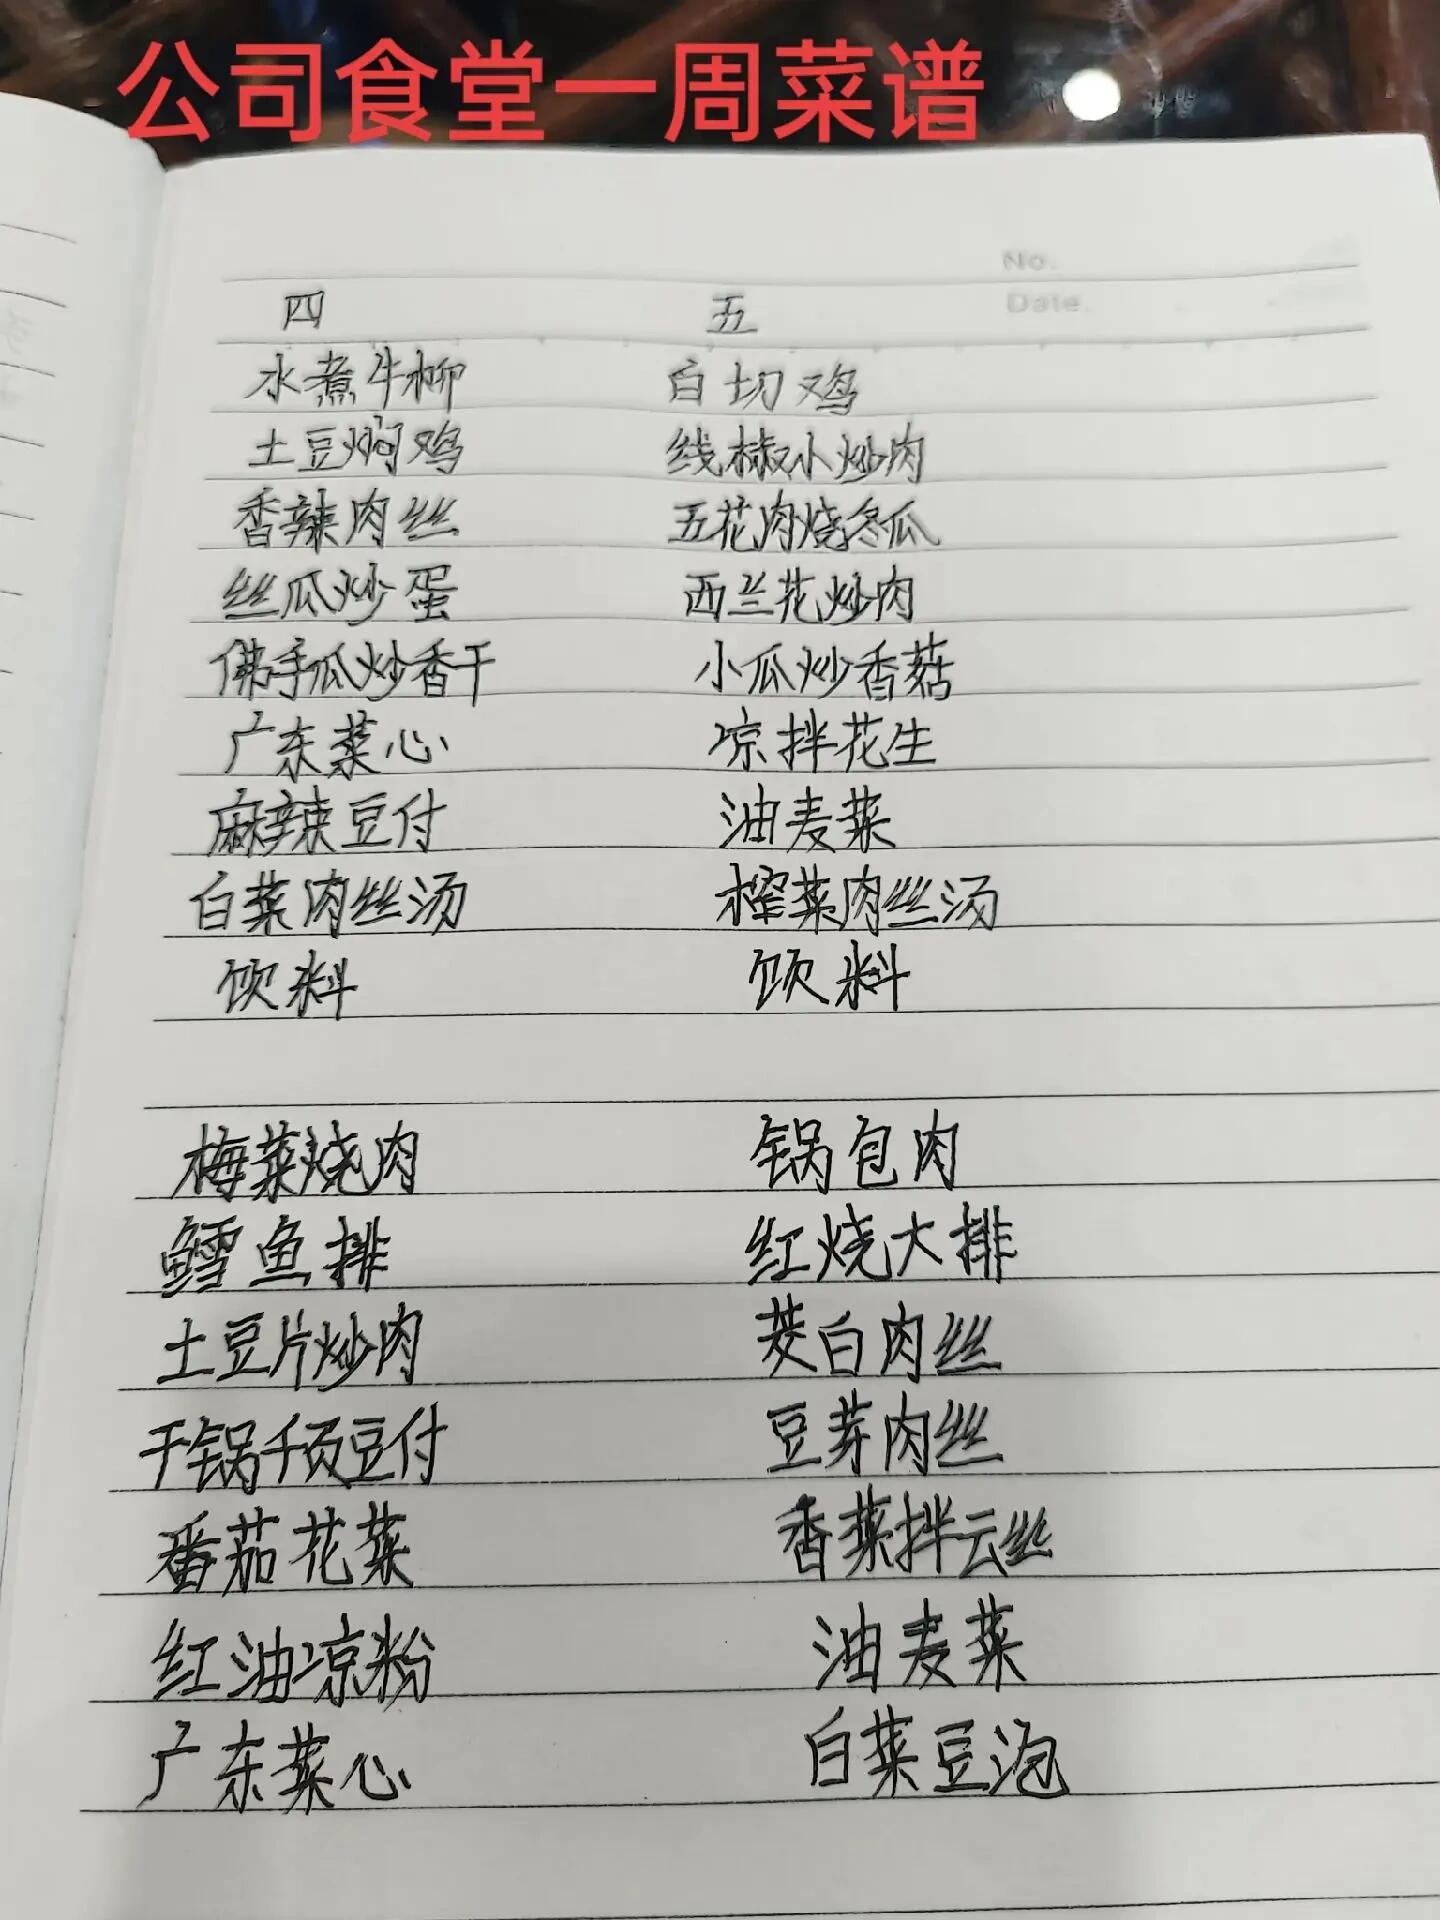 公司食堂一周菜谱
No.
Date.
四 五
水煮牛柳 白切鸡
土豆焖鸡 线椒小炒肉
香辣肉丝 五花肉烧冬瓜
丝瓜炒蛋 西兰花炒肉
佛手瓜炒香干 小瓜炒香菇
广东菜心 凉拌花生
麻辣豆付 油麦菜
白菜肉丝汤 榨菜肉丝汤
饮料 饮料
梅菜烧肉 锅包肉
鳕鱼排 红烧大排
土豆片炒肉 茭白肉丝
干锅千页豆付 豆芽肉丝
番茄花菜 香菜拌云丝
红油凉粉 油麦菜
广东菜心 白菜豆泡